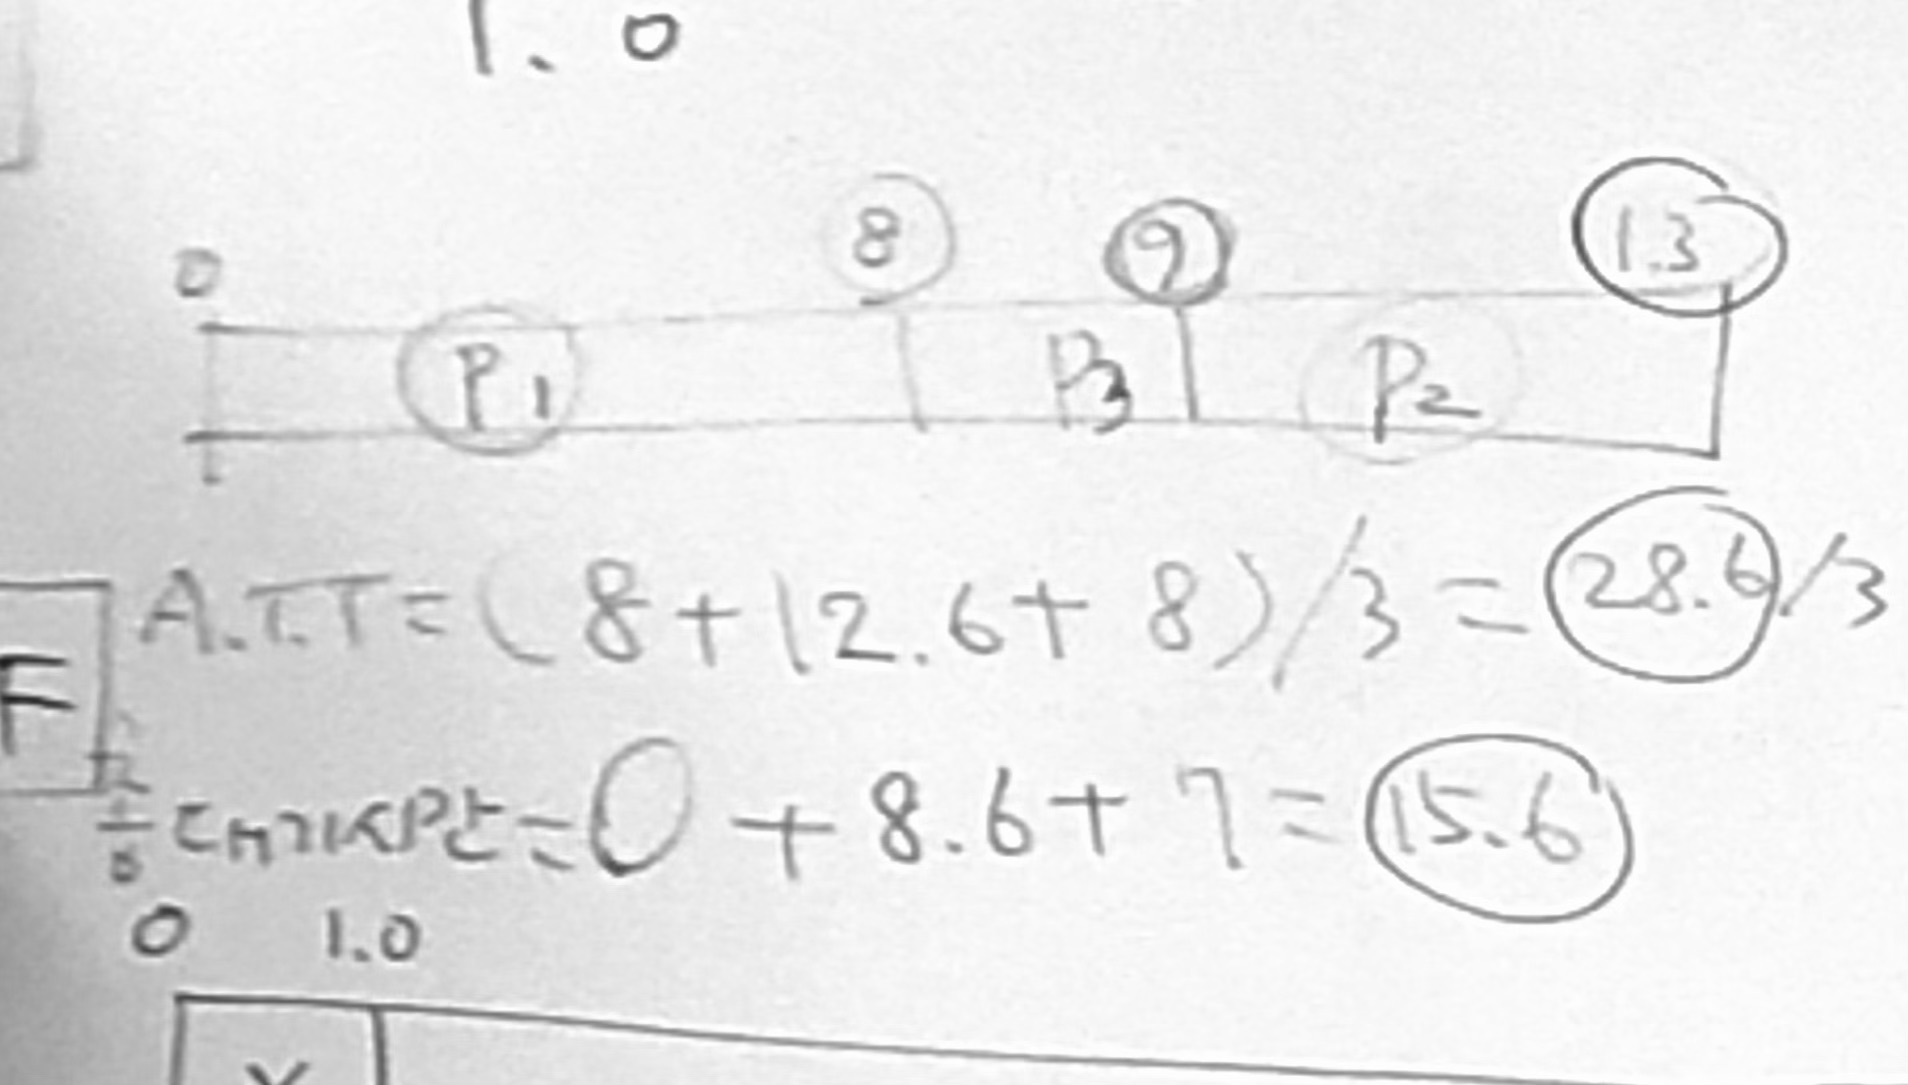 1.0
0 8 9 13
P1 P3 P2
A.T.T = (8+12.6+8)/3 = 28.6/3
F
= 0 + 8.6 + 7 = 15.6
0 1.0
X